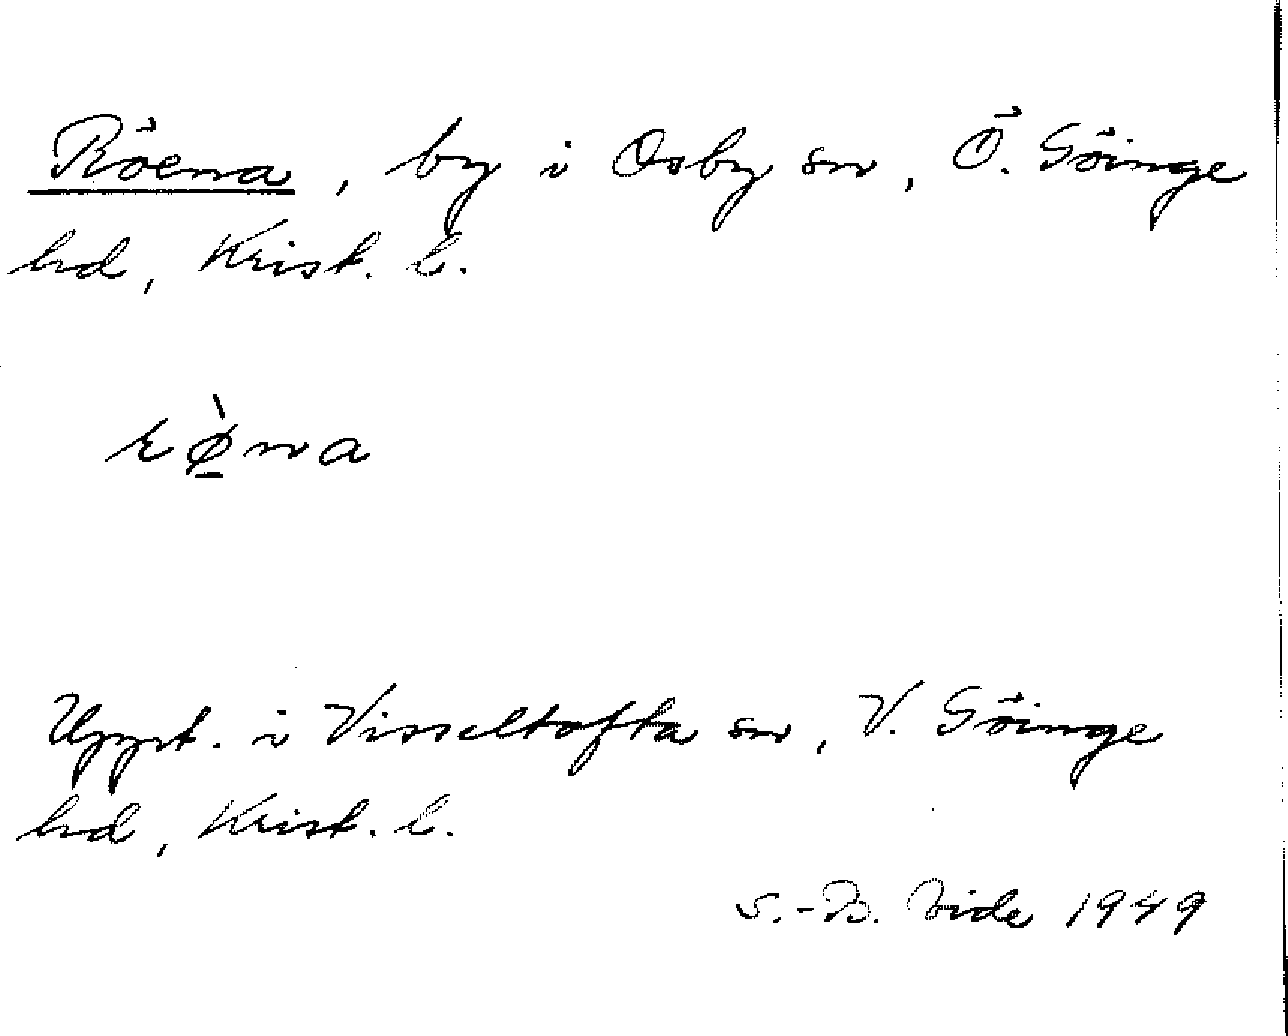 Röena, by i Osby sn, Ö. Göinge
hd, Krist. l.
Uppt. i Visseltofta sn, V. Göinge
hd, Krist. l.
S.-B. Vide 1949